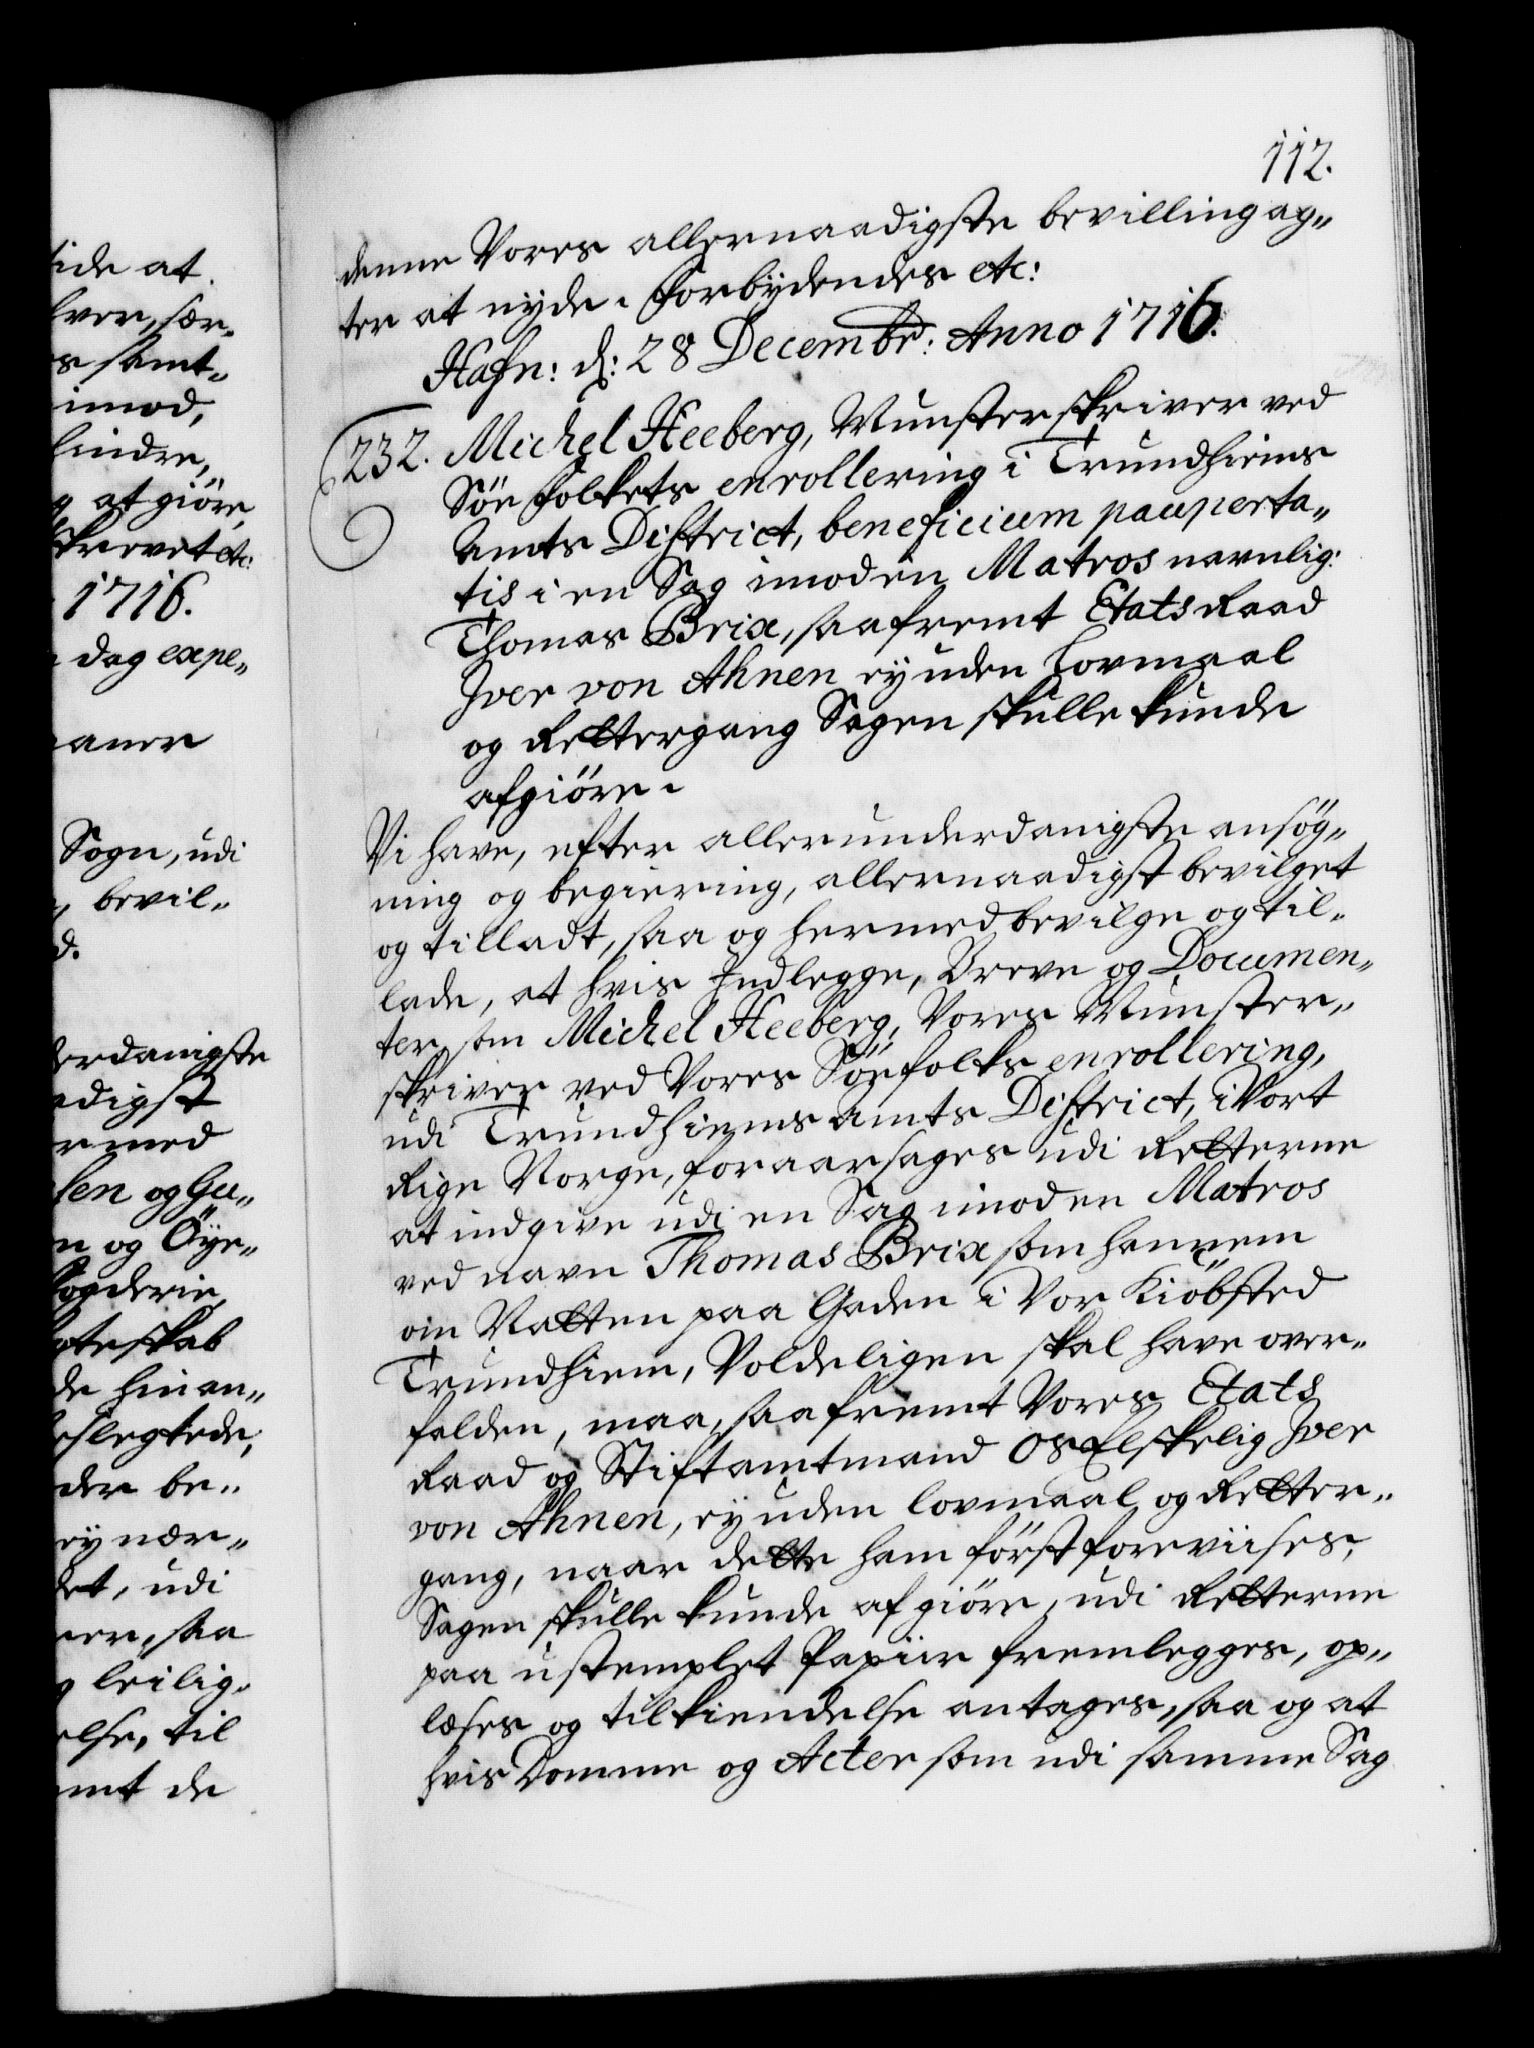 112.
denne Vores allernaadigste bevilling ag„
ter at nyde. Forbydendes etc:
Hafn: d: 28 Decembr: Anno 1716.
232. Michel Heeberg, Munsterskriver ved
Söe Folkets enrollering i Trundhiems
Amts District, beneficium pauperta„
tis i en Sag imod en Matros navnlig:
Thomas Brix, saafremt Etats Raad
Iver von Ahnen ey uden Lovmaal
og Rettergang Sagen skulle kunde
afgiöre.
Vi have, efter allerunderdanigste ansög„
ning og begiering, allernaadigst bevilget
og tilladt, saa og hermed bevilge og til„
lade, at hvis Indlegge, Breve og Documen„
ter som Michel Heeberg, Vores Munster„
skriver ved Vores Söefolks enrollering,
udi Trundhiems Amts District, i Vort
Rige Norge, foraarsages udi Retterne
at indgive udi en Sag imod en Matros
ved navn Thomas Brix som hannem
om Natten paa Gaden i Vor Kiöbsted
Trundhiem, Voldeligen skal have over„
falden, maa, saafremt Vores Etats
Raad og Stiftamtmand Os Elskelig Iver
von Ahnen, ey uden lovmaal og Retter„
gang, naar dette ham först foreviises,
Sagen skulle kunde afgiöre, udi Retterne
paa ustemplet Papiir fremlegges, op„
læses og til kiendelse antages, saa og at
hvis Domme og Acter som udi samme Sag
tide at
lver, sær„
s samt„
imod,
hindre,
g at giöre,
skrevet etc:
1716.
dag expe„
aner
Sogn, udi
bevil„
d.
erdanigste
adigst
rmed
sen og Gu„
n og Öye„
Fogderie,
gteskab
de hinan„
eslegtede,
der be„
ey nær„
det, udi
er, saa
g leilig„
else, til
mt de